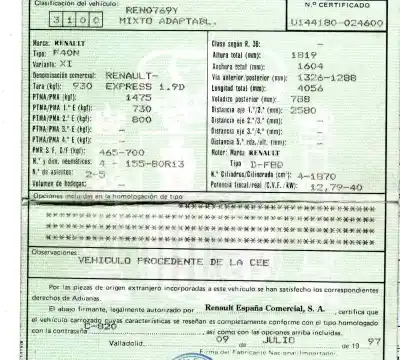 Clasificación del vehículo:
RENO769Y
N.º CERTIFICADO
3100
MIXTO ADAPTABL.
U144180-024600
Marca: RENAULT
Tipo: F40N
Variante: XI
Denominación comercial: RENAULT-
Tara (kgf): 930 EXPRESS 1.9D
PTMA/PMA (kgf): 1475
PTMA/PMA 1.º E (kgf): 730
PTMA/PMA 2.º E (kgf): 800
PTMA/PMA 3.º E (kgf): -
PTMA/PMA 4.º E (kgf): -
PMR S.F. D/F (kgf): 465-700
N.º y dim. neumáticos: 4 - 155-80R13
N.º de asientos: 2-5
Volumen de bodegas: -
Clase según R. 36: -
Altura total (mm): 1819
Anchura total (mm): 1604
Vía anterior/posterior (mm): 1326-1288
Longitud total (mm): 4056
Voladizo posterior (mm): 788
Distancia eje 1.º/2.º (mm): 2580
Distancia eje 2.º/3.º (mm): -
Distancia eje 3.º/4.º (mm): -
Distancia 5.ª rda./elt. (mm): -
Motor: Marca RENAULT
Tipo D-F8D
N.º Cilindros/Cilindrada (cm³): 4-1870
Potencia fiscal/real (C.V.F./kW): 12,79-40
Opciones incluidas en la homologación de tipo
Observaciones:
VEHICULO PROCEDENTE DE LA CEE
Por las piezas de origen extranjero incorporadas a este vehículo se han satisfecho los correspondientes
derechos de Aduanas.
El abajo firmante, legalmente autorizado por Renault España Comercial, S. A. , certifica que
el vehículo carrozado cuyas características se reseñan es completamente conforme con el tipo homologado
con la contraseña C-820 , así como con las opciones arriba incluidas.
Valladolid, 09 de JULIO de 1997
Firma del Fabricante Nacional-Importador